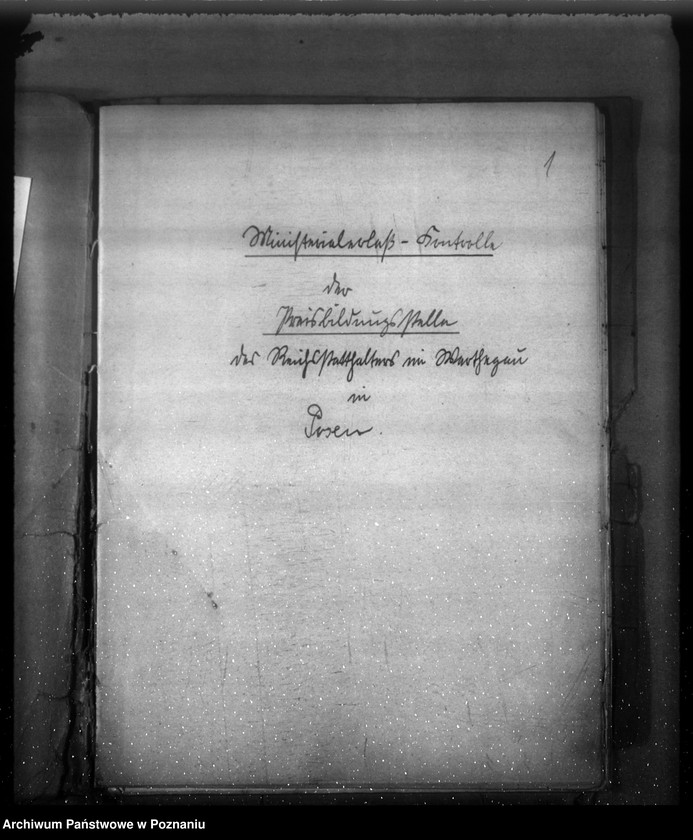 1
Ministerialerlaß - Kontrolle
der
Preisbildungsstelle
des Reichsstatthalters im Warthegau
in
Posen.
Archiwum Państwowe w Poznaniu